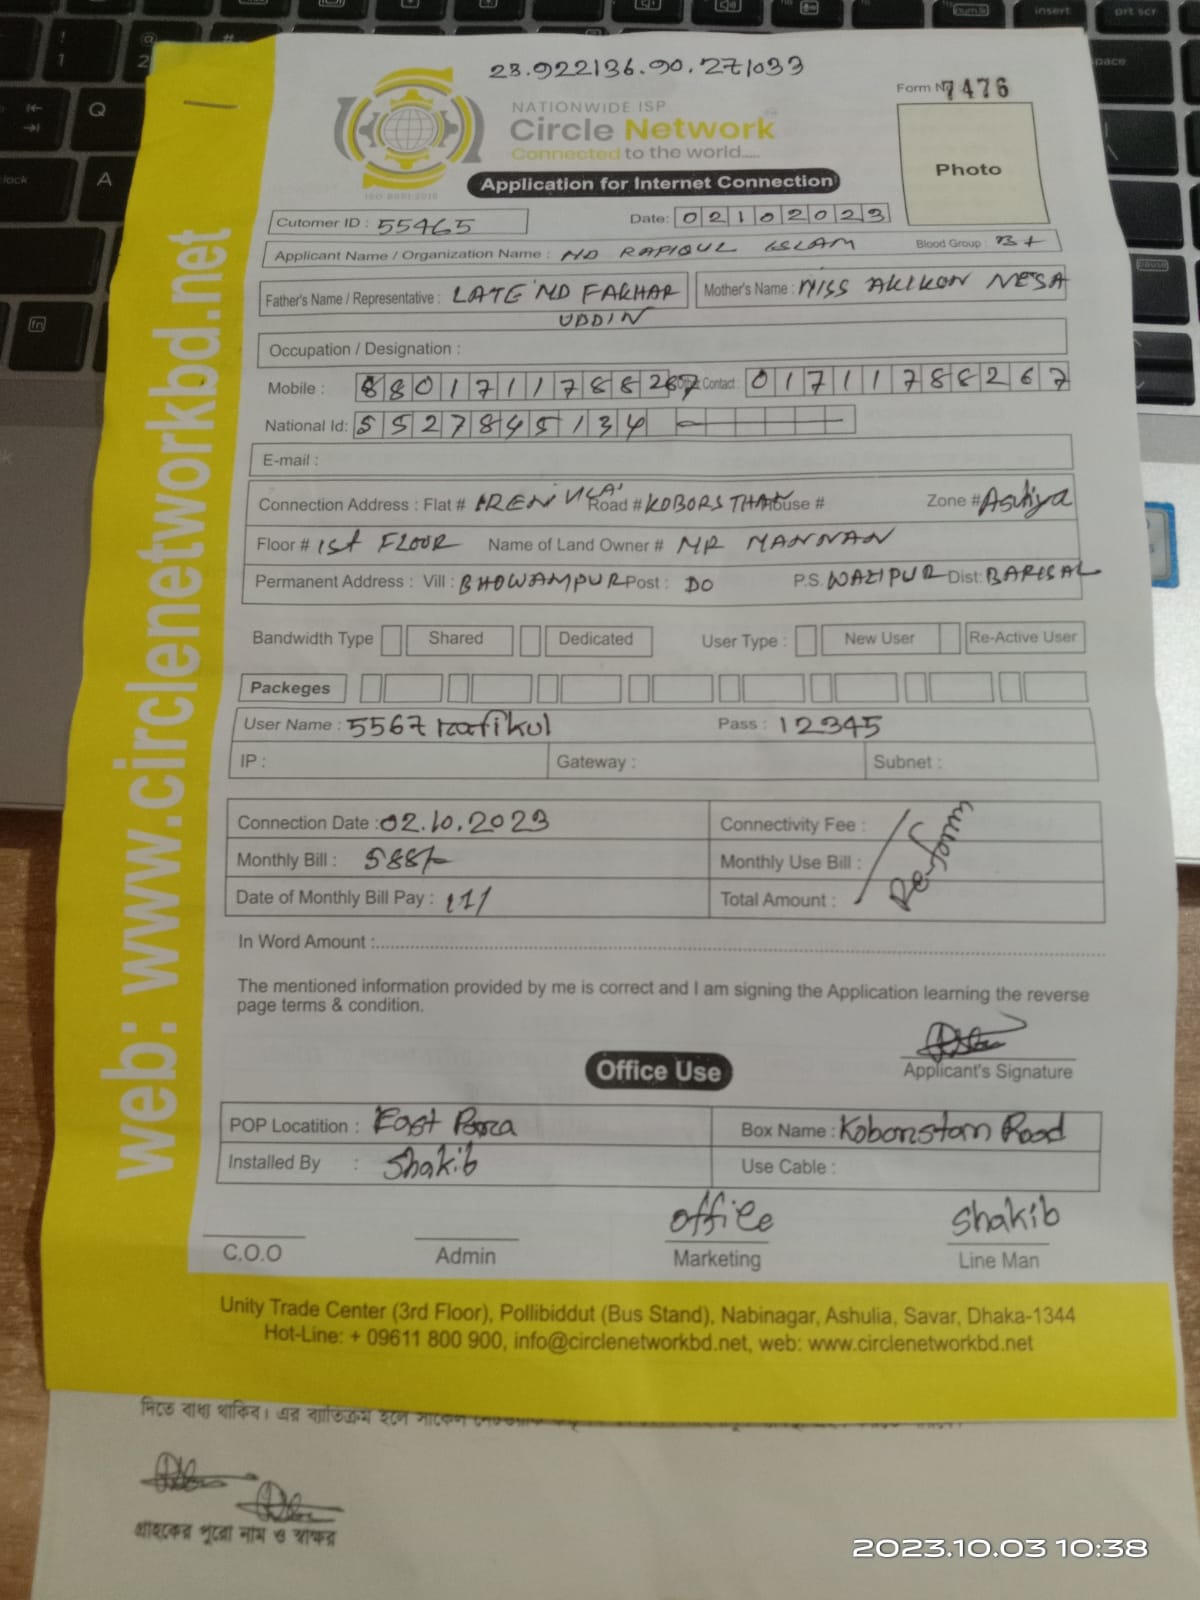 23.922136.90.271033
Form No 7476
NATIONWIDE ISP
Circle Network
Connected to the world.....
ISO 9001:2015
Application for Internet Connection
Photo
Cutomer ID : 55465
Date: 02102023
Applicant Name / Organization Name : MD RAFIQUL ISLAM Blood Group : B+
Father's Name / Representative : LATE MD FAKHAR UDDIN
Mother's Name : MISS AKIKON NESA
Occupation / Designation :
Mobile : 8801711788267 Contact : 01711788267
National Id: 5527845134
E-mail :
Connection Address : Flat # IREN VILA Road # KOBORSTHAN House # Zone # Asuliya
Floor # 1st FLOOR Name of Land Owner # MR MANNAN
Permanent Address : Vill : BHOWAMPUR Post : DO P.S. WAZIPUR Dist: BARISAL
Bandwidth Type Shared Dedicated User Type : New User Re-Active User
Packeges
User Name : 5567rafikul Pass : 12345
IP : Gateway : Subnet :
Connection Date : 02.10.2023 Connectivity Fee :
Monthly Bill : 588/- Monthly Use Bill :
Date of Monthly Bill Pay : Total Amount :
In Word Amount :
The mentioned information provided by me is correct and I am signing the Application learning the reverse
page terms & condition.
Applicant's Signature
Office Use
POP Locatition : East Para Box Name : Koborstan Road
Installed By : Shakib Use Cable :
office shakib
C.O.O Admin Marketing Line Man
Unity Trade Center (3rd Floor), Pollibiddut (Bus Stand), Nabinagar, Ashulia, Savar, Dhaka-1344
Hot-Line: + 09611 800 900, info@circlenetworkbd.net, web: www.circlenetworkbd.net
web: www.circlenetworkbd.net
দিতে বাধ্য থাকিব। এর ব্যতিক্রম হলে
গ্রাহকের পুরো নাম ও স্বাক্ষর
2023.10.03 10:38